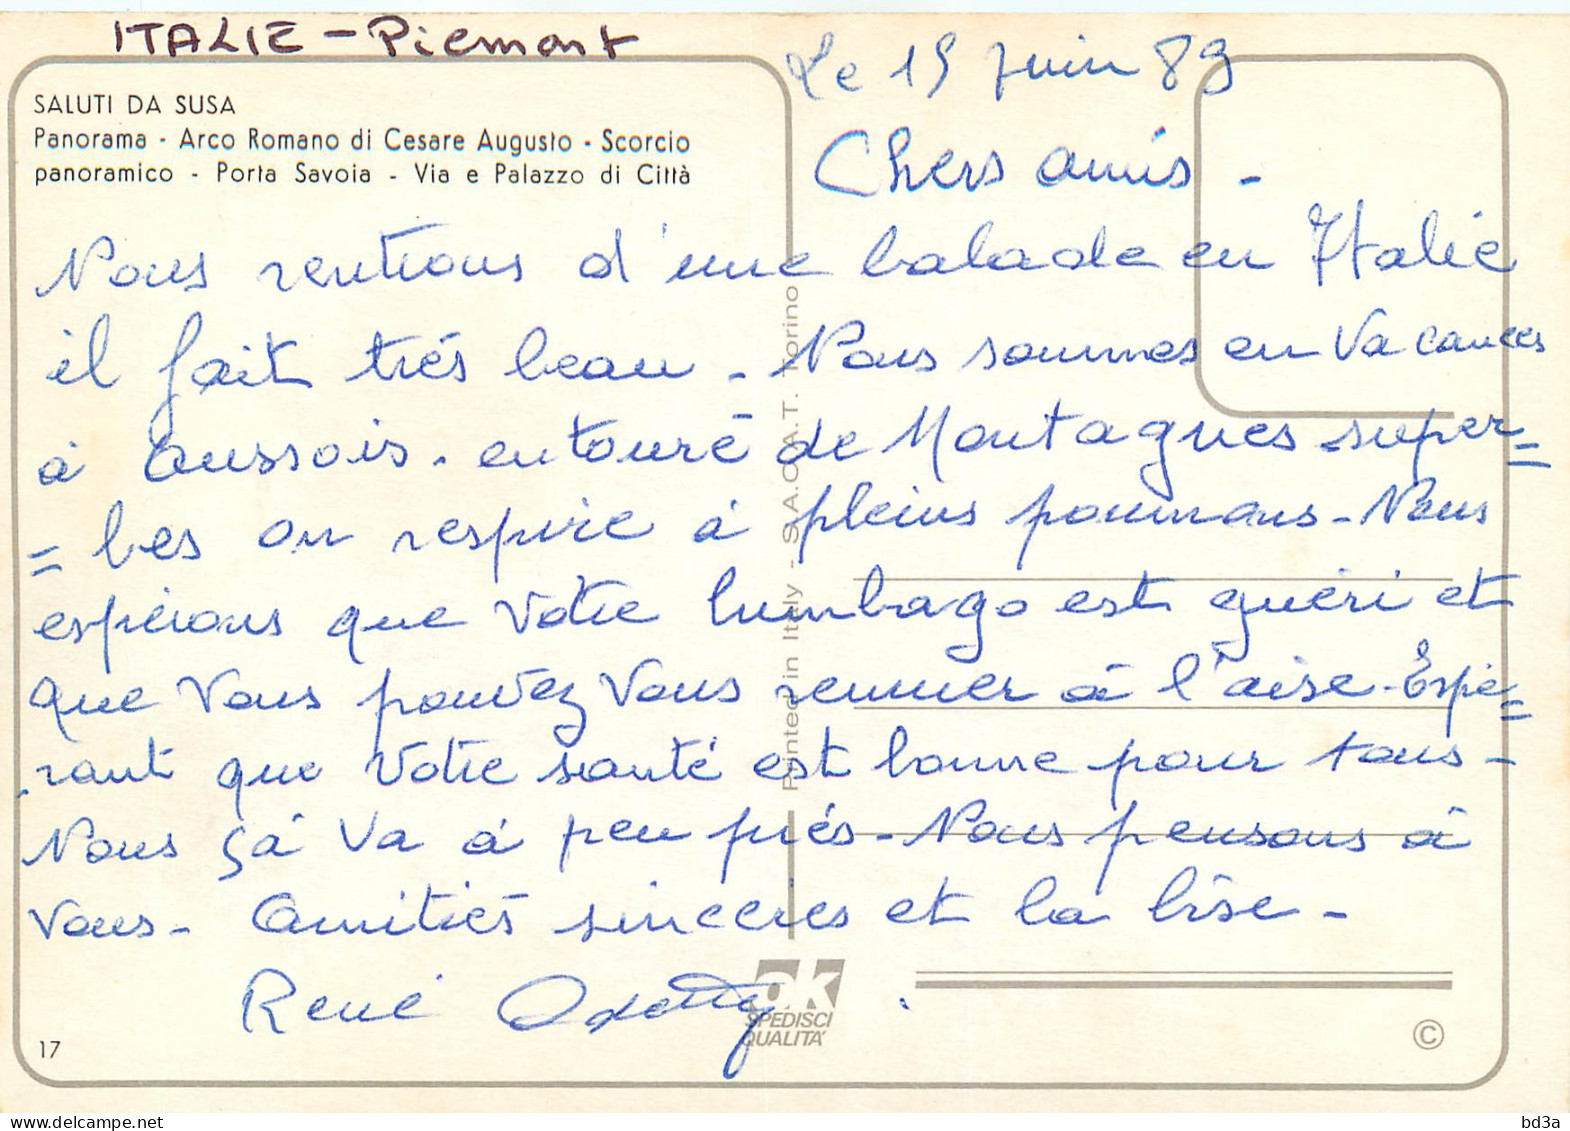 ITALIE - Piemont
SALUTI DA SUSA
Panorama - Arco Romano di Cesare Augusto - Scorcio
panoramico - Porta Savoia - Via e Palazzo di Città
Le 15 Juin 89
Chers amis -
Nous rentrons d'une balade en Italie
il fait trés beau - Nous sommes en Vacances
à Aussois. entouré de Montagnes super=
=bes on respire à pleins poumons - Nous
espérons que votre lumbago est guéri et
que Vous pouvez Vous remuer à l'aise - Espé=
rant que Votre santé est bonne pour tous -
Nous çà va à peu près - Nous pensons à
vous - Amitiés sincères et la bise -
René Odette
Printed in Italy - S.A.C.A.T. Torino
ak
SPEDISCI
QUALITA'
17
©
bd3a